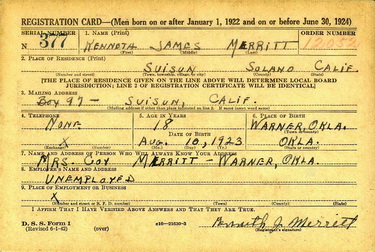 REGISTRATION CARD—(Men born on or after January 1, 1922 and on or before June 30, 1924)
SERIAL NUMBER 1. NAME (Print) ORDER NUMBER
N 377 KENNETH JAMES MERRITT
(First) (Middle) (Last)
2. PLACE OF RESIDENCE (Print)
SUISUN SOLANO CALIF.
(Town, township, village, or city) (County) (State)
[THE PLACE OF RESIDENCE GIVEN ON THE LINE ABOVE WILL DETERMINE LOCAL BOARD
JURISDICTION; LINE 2 OF REGISTRATION CERTIFICATE WILL BE IDENTICAL]
3. MAILING ADDRESS
BOX 97 - SUISUN, CALIF.
[Mailing address if other than place indicated on line 2. If same insert word same]
4. TELEPHONE 5. AGE IN YEARS 6. PLACE OF BIRTH
NONE 18 WARNER, OKLA.
DATE OF BIRTH (Town or county)
X AUG. 10, 1923 OKLA.
(Exchange) (Number) (Mo.) (Day) (Yr.) (State or country)
7. NAME AND ADDRESS OF PERSON WHO WILL ALWAYS KNOW YOUR ADDRESS
MRS. COY MERRITT - WARNER, OKLA.
8. EMPLOYER'S NAME AND ADDRESS
UNEMPLOYED
9. PLACE OF EMPLOYMENT OR BUSINESS
X
(Number and street or R. F. D. number) (Town) (County) (State)
I AFFIRM THAT I HAVE VERIFIED ABOVE ANSWERS AND THAT THEY ARE TRUE.
D. S. S. Form 1 Kenneth J. Merritt
(Revised 6-1-42) (over) (Registrant's signature)